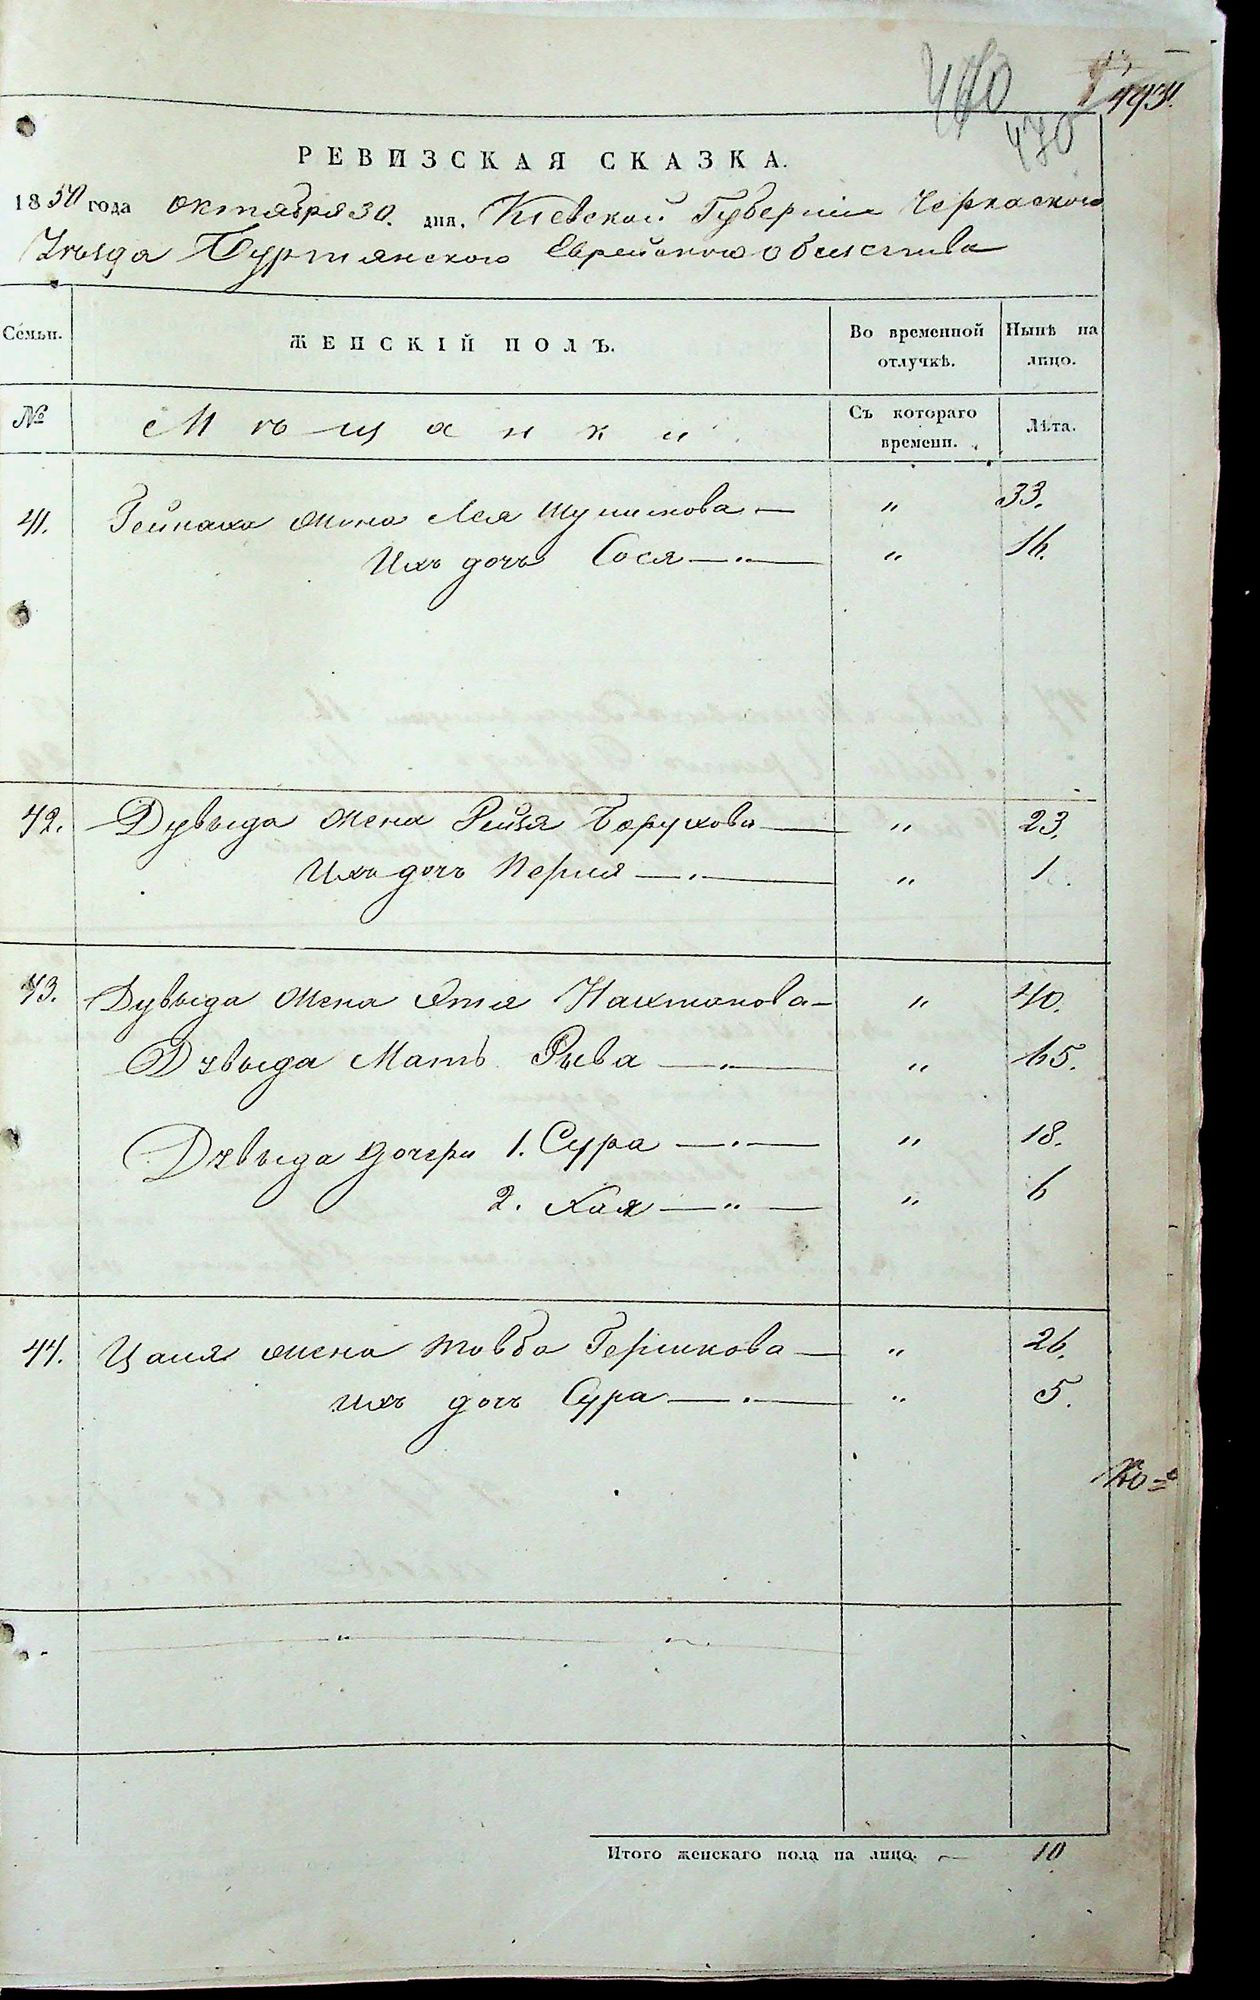 470
РЕВИЗСКАЯ СКАЗКА.
1850 года октября 30. дня, Киевской Губернии Черкаского
Уѣзда Буртянского Еврейского общества
Семьи.
ЖЕНСКІЙ ПОЛЪ.
Во временной отлучкѣ.
Нынѣ на лицо.
№
Мѣщанки
Съ котораго времени.
Лѣта.
41. жена Лея " 33.
Ихъ дочь Сося " 16.
42. Дувыда жена Рейзя Борухова " 23.
Ихъ дочь Перля " 1.
43. Дувыда жена Этя " 40.
Дувыда Мать Рыва " 65.
Дувыда дочери 1. Сура " 18.
2. Хая " 6
44. жена Товба Гершкова " 26.
Ихъ дочь Сура " 5.
Итого женскаго пола на лицо. 10